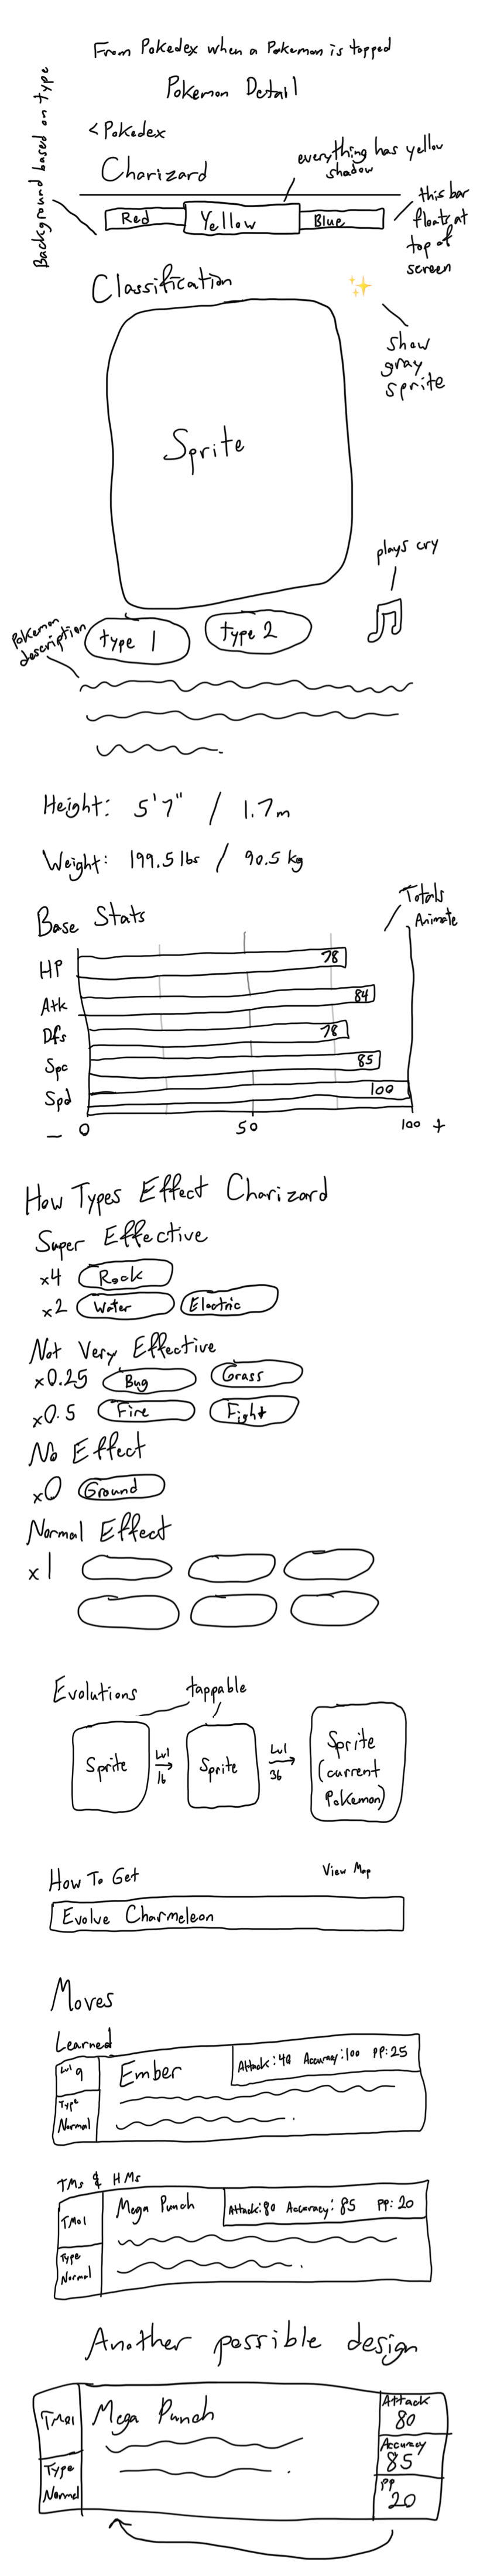 From Pokedex when a Pokemon is tapped
Pokemon Detail
Background based on type
< Pokedex
everything has yellow
shadow
Charizard
this bar
floats at
top of
screen
Red
Yellow
Blue
Classification
show
gray
sprite
Sprite
plays cry
Pokemon
description
type 1
type 2
Height: 5'7" / 1.7m
Weight: 199.5 lbs / 90.5 kg
Totals
Animate
Base Stats
HP 78
Atk 84
Dfs 78
Spc 85
Spd 100
- 0 50 100 +
How Types Effect Charizard
Super Effective
x4 Rock
x2 Water Electric
Not Very Effective
x0.25 Bug Grass
x0.5 Fire Fight
No Effect
x0 Ground
Normal Effect
x1
Evolutions
tappable
Sprite
Lvl
16
Sprite
Lvl
36
Sprite
(current
Pokemon)
How To Get
View Map
Evolve Charmeleon
Moves
Learned
Lvl 9
Ember
Attack: 40 Accuracy: 100 PP: 25
Type
Normal
TMs & HMs
TM01
Mega Punch
Attack: 80 Accuracy: 85 PP: 20
Type
Normal
Another possible design
TM01
Mega Punch
Attack
80
Accuracy
85
Type
Normal
PP
20